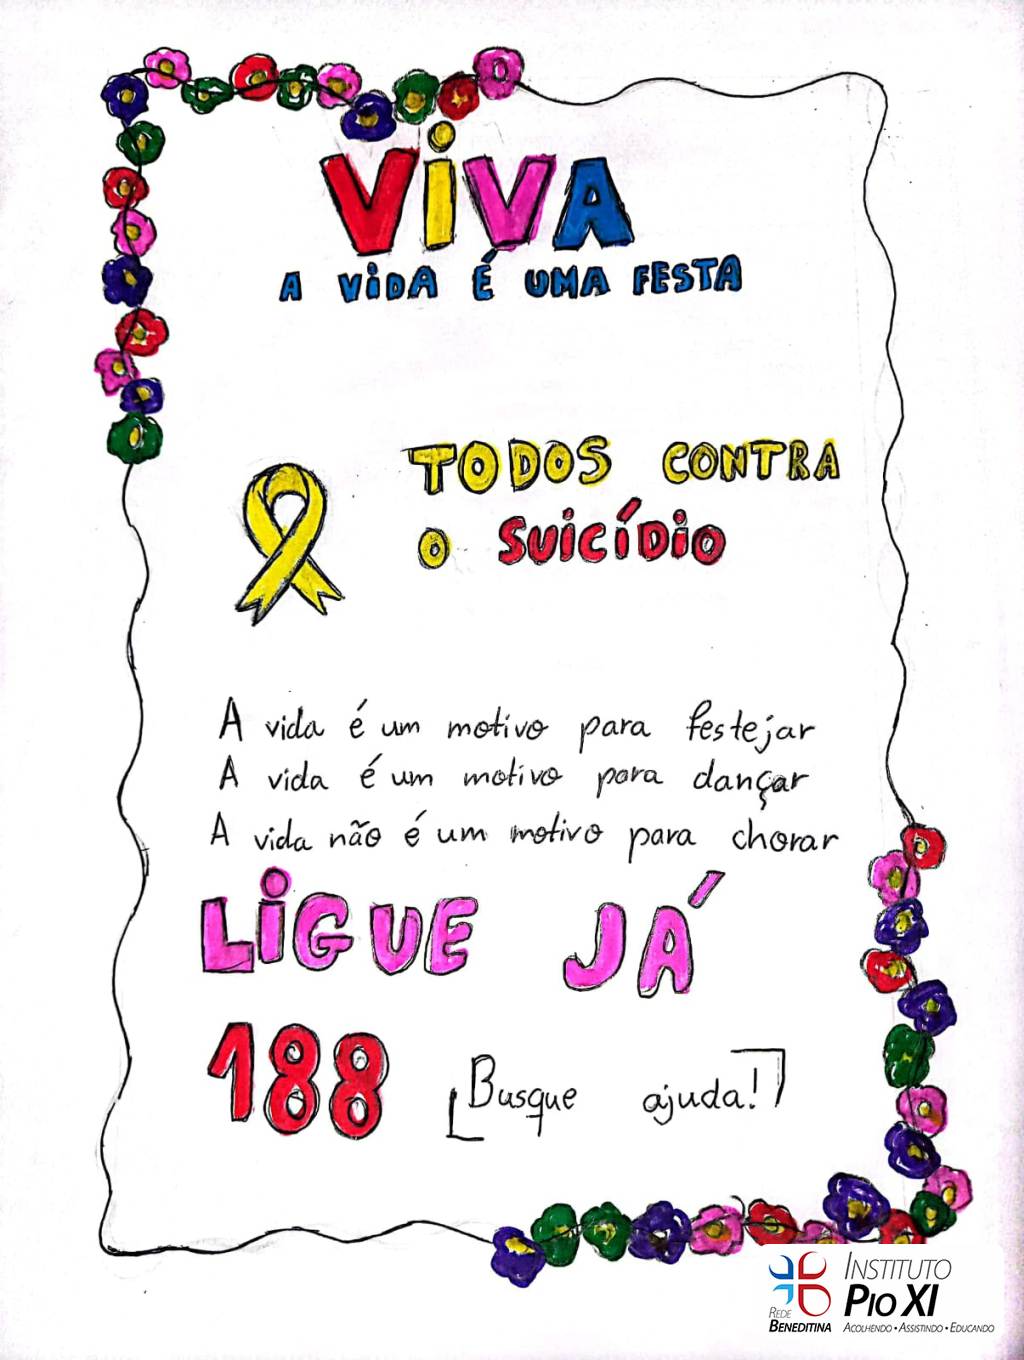 ViVA
A ViDA É UMA FESTA
TODOS CONTRA
O SUiCÍDiO
A vida é um motivo para festejar
A vida é um motivo para dançar
A vida não é um motivo para chorar
LiGUE JÁ
188 Busque ajuda!
INSTITUTO
PIO XI
REDE
BENEDITINA
ACOLHENDO • ASSISTINDO • EDUCANDO